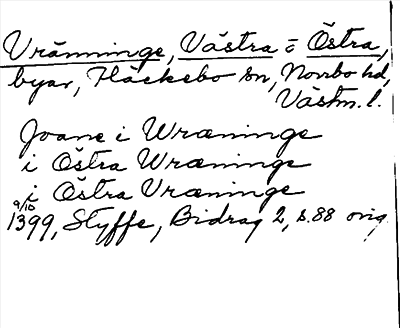 Vränninge, Västra o Östra,
byar, Fläckebo sn, Norrbo hd,
Västm. l.
Joane i Wræninge
i Östra Wræninge
i Östra Vræninge
9/10
1399, Styffe, Bidrag 2, s. 88 orig